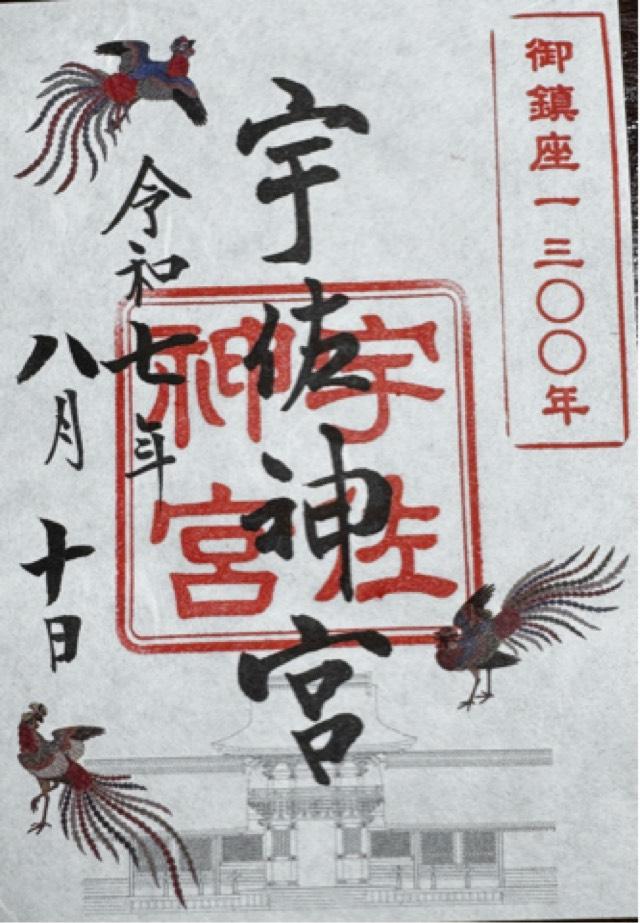 御鎮座一三〇〇年
宇佐神宮
宇佐
神宮
令和七年
八月十日